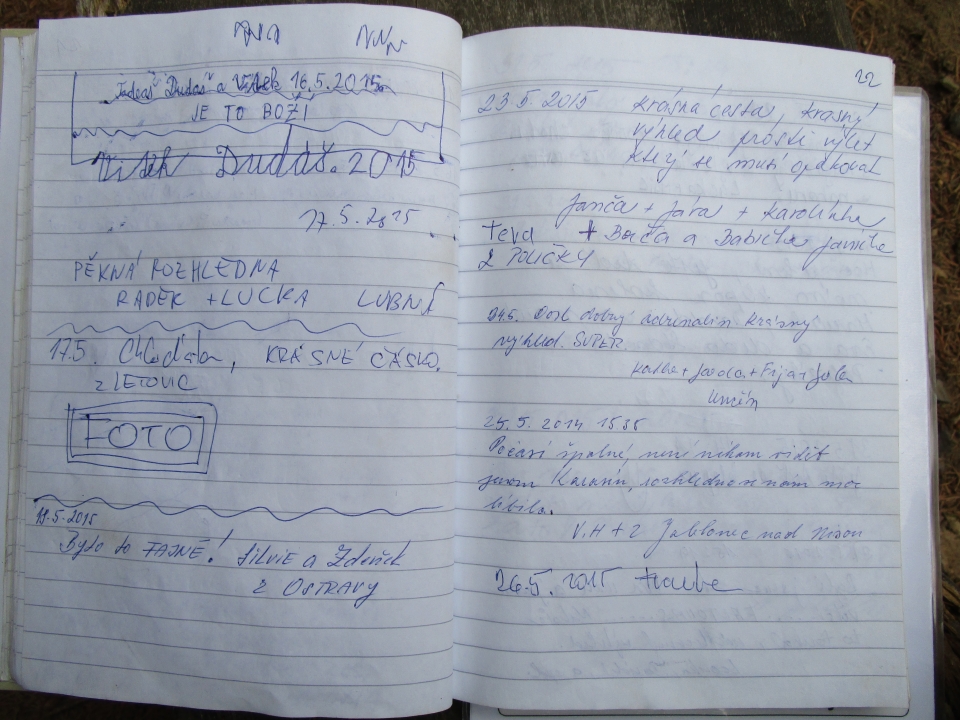 Tadeáš Dudáš a Vítek 16.5.2015
JE TO BOŽÍ
Vítek Dudáš. 2015
17.5.2015
PĚKNÁ ROZHLEDNA
RADEK + LUCKA LUBNÁ
17.5. KRÁSNÉ
z LETOVIC
FOTO
19.5.2015
Bylo to FAJNÉ! Silvie a Zdeněk
z OSTRAVY
22
23.5.2015 krásná cesta, krásný
výhled prostě výlet
který se musí opakovat
Janča + Jára + Karolínka
teta + Bára a Babička
z POLIČKY
24.5. Dost dobrý adrenalin. Krásný
výhled. SUPER
25.5.2014 15
Počasí špatné, není nikam vidět
jenom rozhledna se nám moc
líbila.
V.H + Z Jablonec nad Nisou
26.5.2015